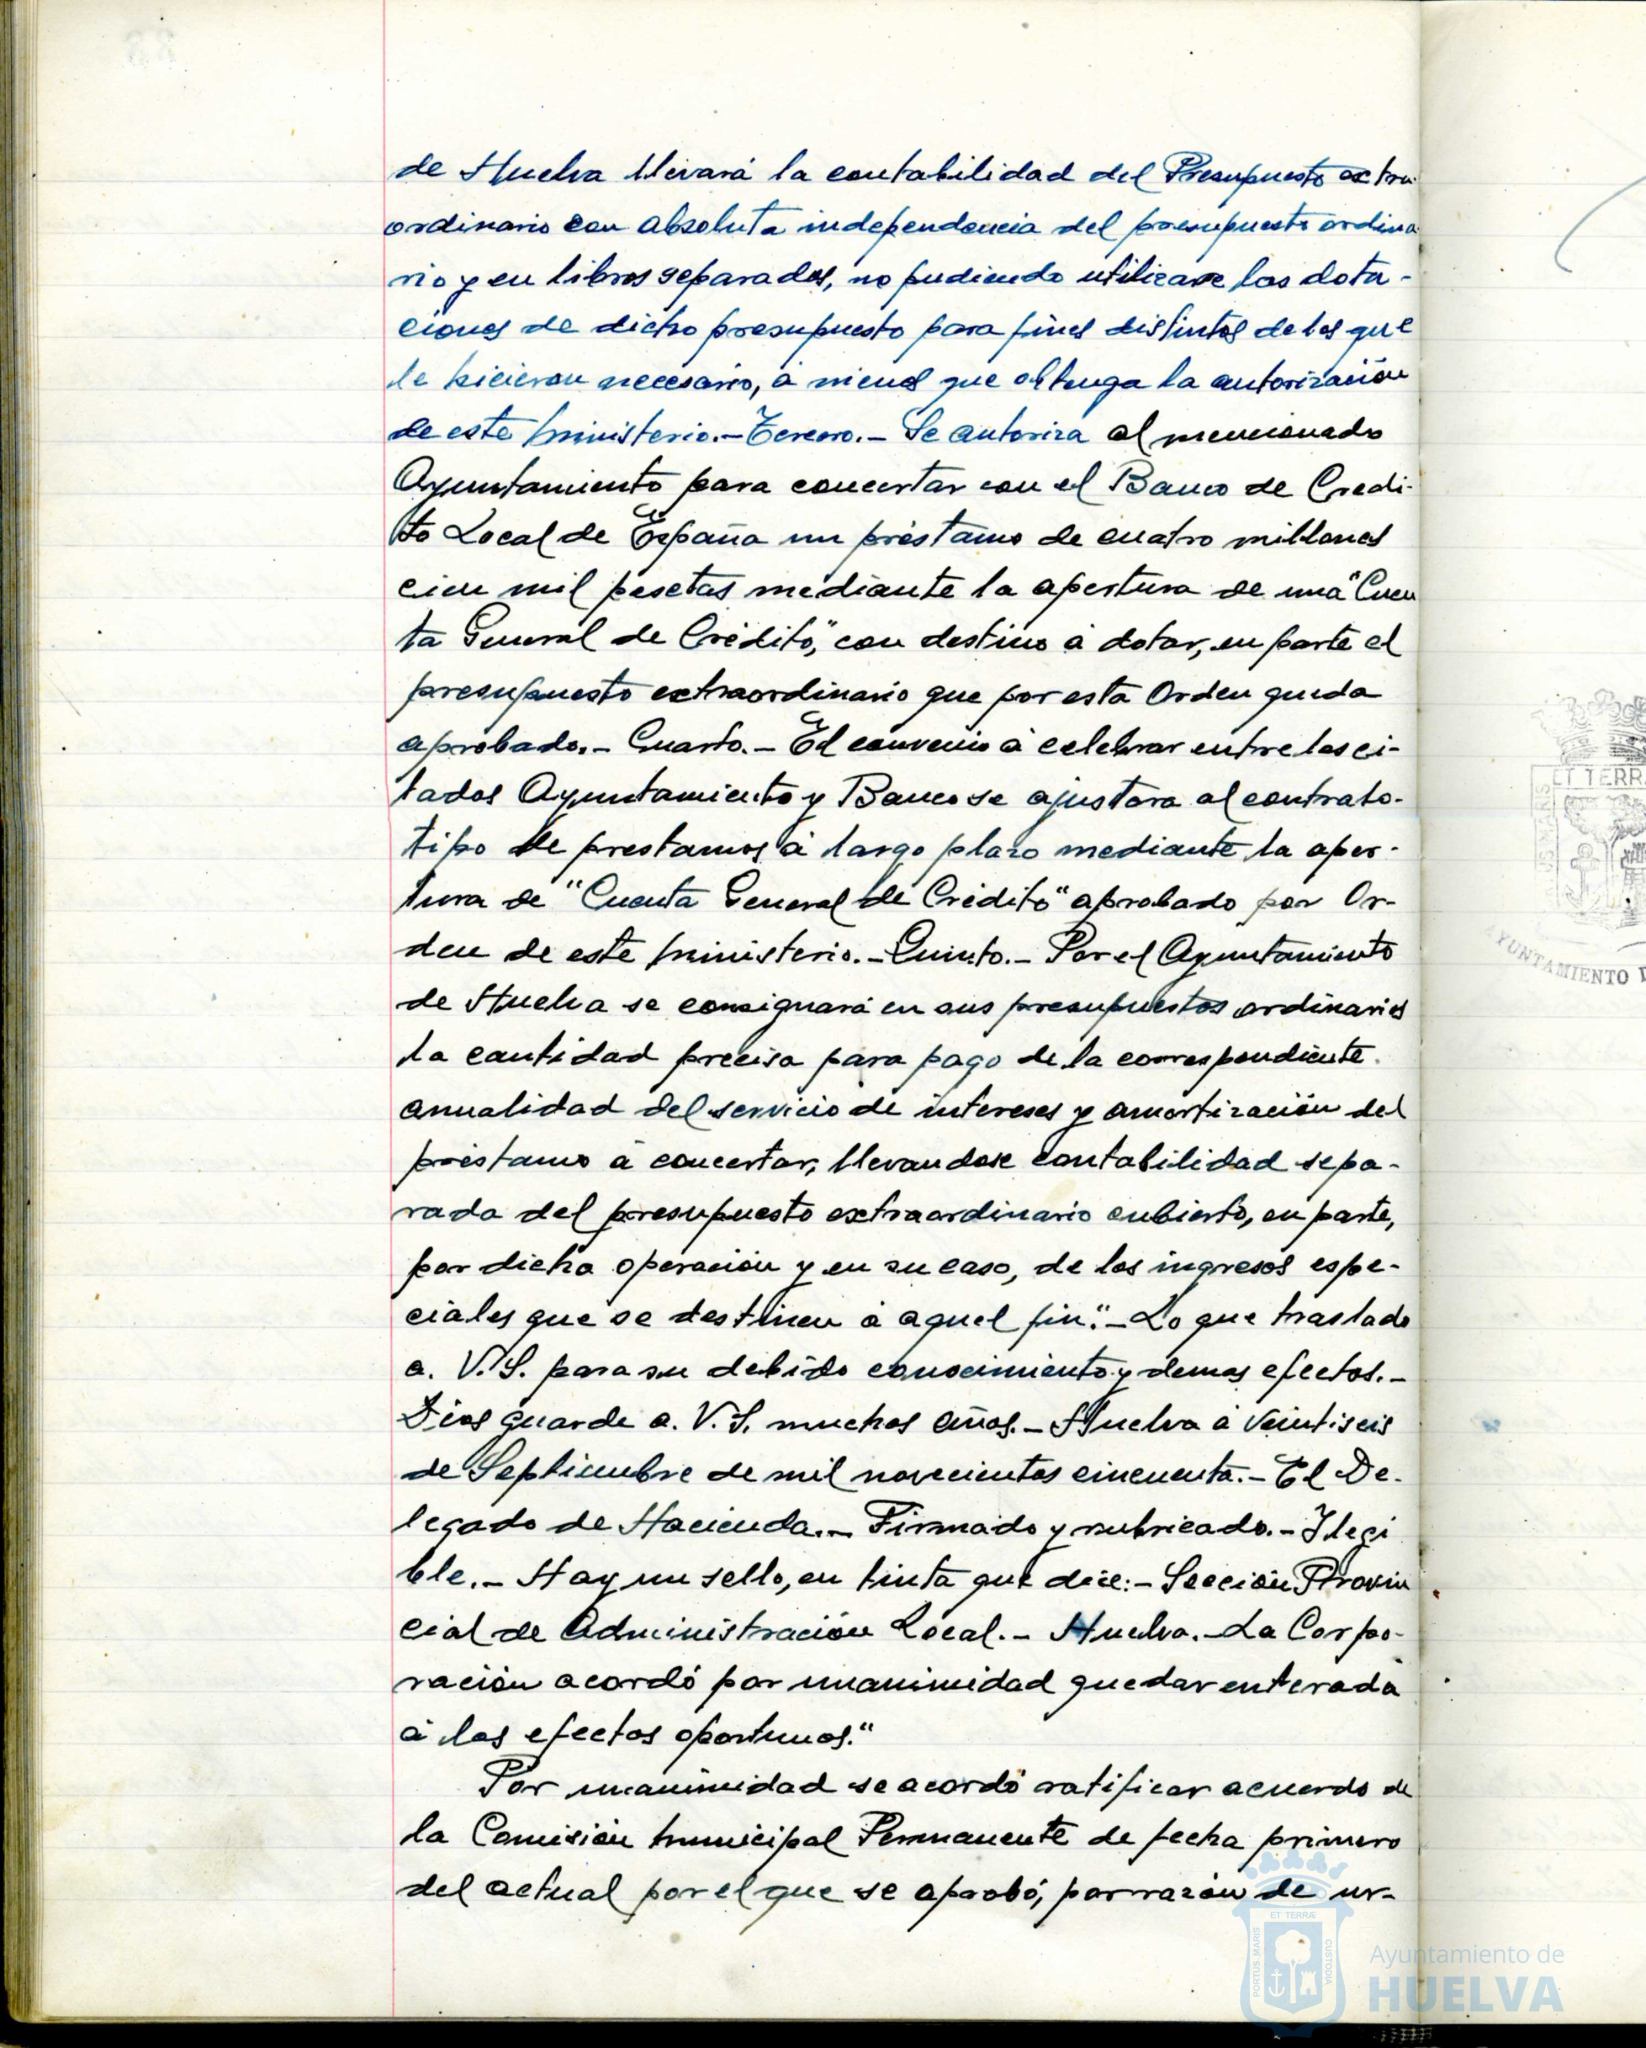 de Huelva llevará la contabilidad del Presupuesto extra
ordinario con absoluta independencia del presupuesto ordina
rio y en libros separados, no pudiendo utilizarse las dota-
ciones de dicho presupuesto para fines distintos de los que
le hicieron necesario, á menos que obtenga la autorización
de este Ministerio.- Tercero.- Se autoriza al mencionado
Ayuntamiento para concertar con el Banco de Credi-
to Local de España un préstamo de cuatro millones
cien mil pesetas mediante la apertura de una "Cuen
ta General de Crédito", con destino á dotar, en parte el
presupuesto extraordinario que por esta Orden queda
aprobado.- Cuarto.- El convenio á celebrar entre los ci-
tados Ayuntamiento y Banco se ajustara al contrato-
tipo de prestamos á largo plazo mediante la aper-
tura de "Cuenta General de Crédito" aprobado por Or-
den de este Ministerio.- Quinto.- Por el Ayuntamiento
de Huelva se consignará en sus presupuestos ordinarios
la cantidad precisa para pago de la correspondiente
anualidad del servicio de intereses y amortización del
préstamo á concertar, llevandose contabilidad sepa-
rada del presupuesto extraordinario cubierto, en parte,
por dicha operación y en su caso, de los ingresos espe-
ciales que se destinen á aquel fin".- Lo que traslado
a. V.S. para su debido conocimiento y demas efectos.-
Dios guarde a. V.S. muchos años.- Huelva á veintiseis
de Septiembre de mil novecientos cincuenta.- El De-
legado de Hacienda.- Firmado y rubricado.- Ilegi
ble.- Hay un sello, en tinta que dice:- Sección Provin
cial de Administración Local.- Huelva.- La Corpo-
ración acordó por unanimidad quedar enterada
á los efectos oportunos."
Por unanimidad se acordó ratificar acuerdo de
la Comisión Municipal Permanente de fecha primero
del actual por el que se aprobó, por razón de ur-
ET TERRA
AYUNTAMIENTO
PORTUS MARIS
ET TERRÆ
CUSTODIA
Ayuntamiento de
HUELVA